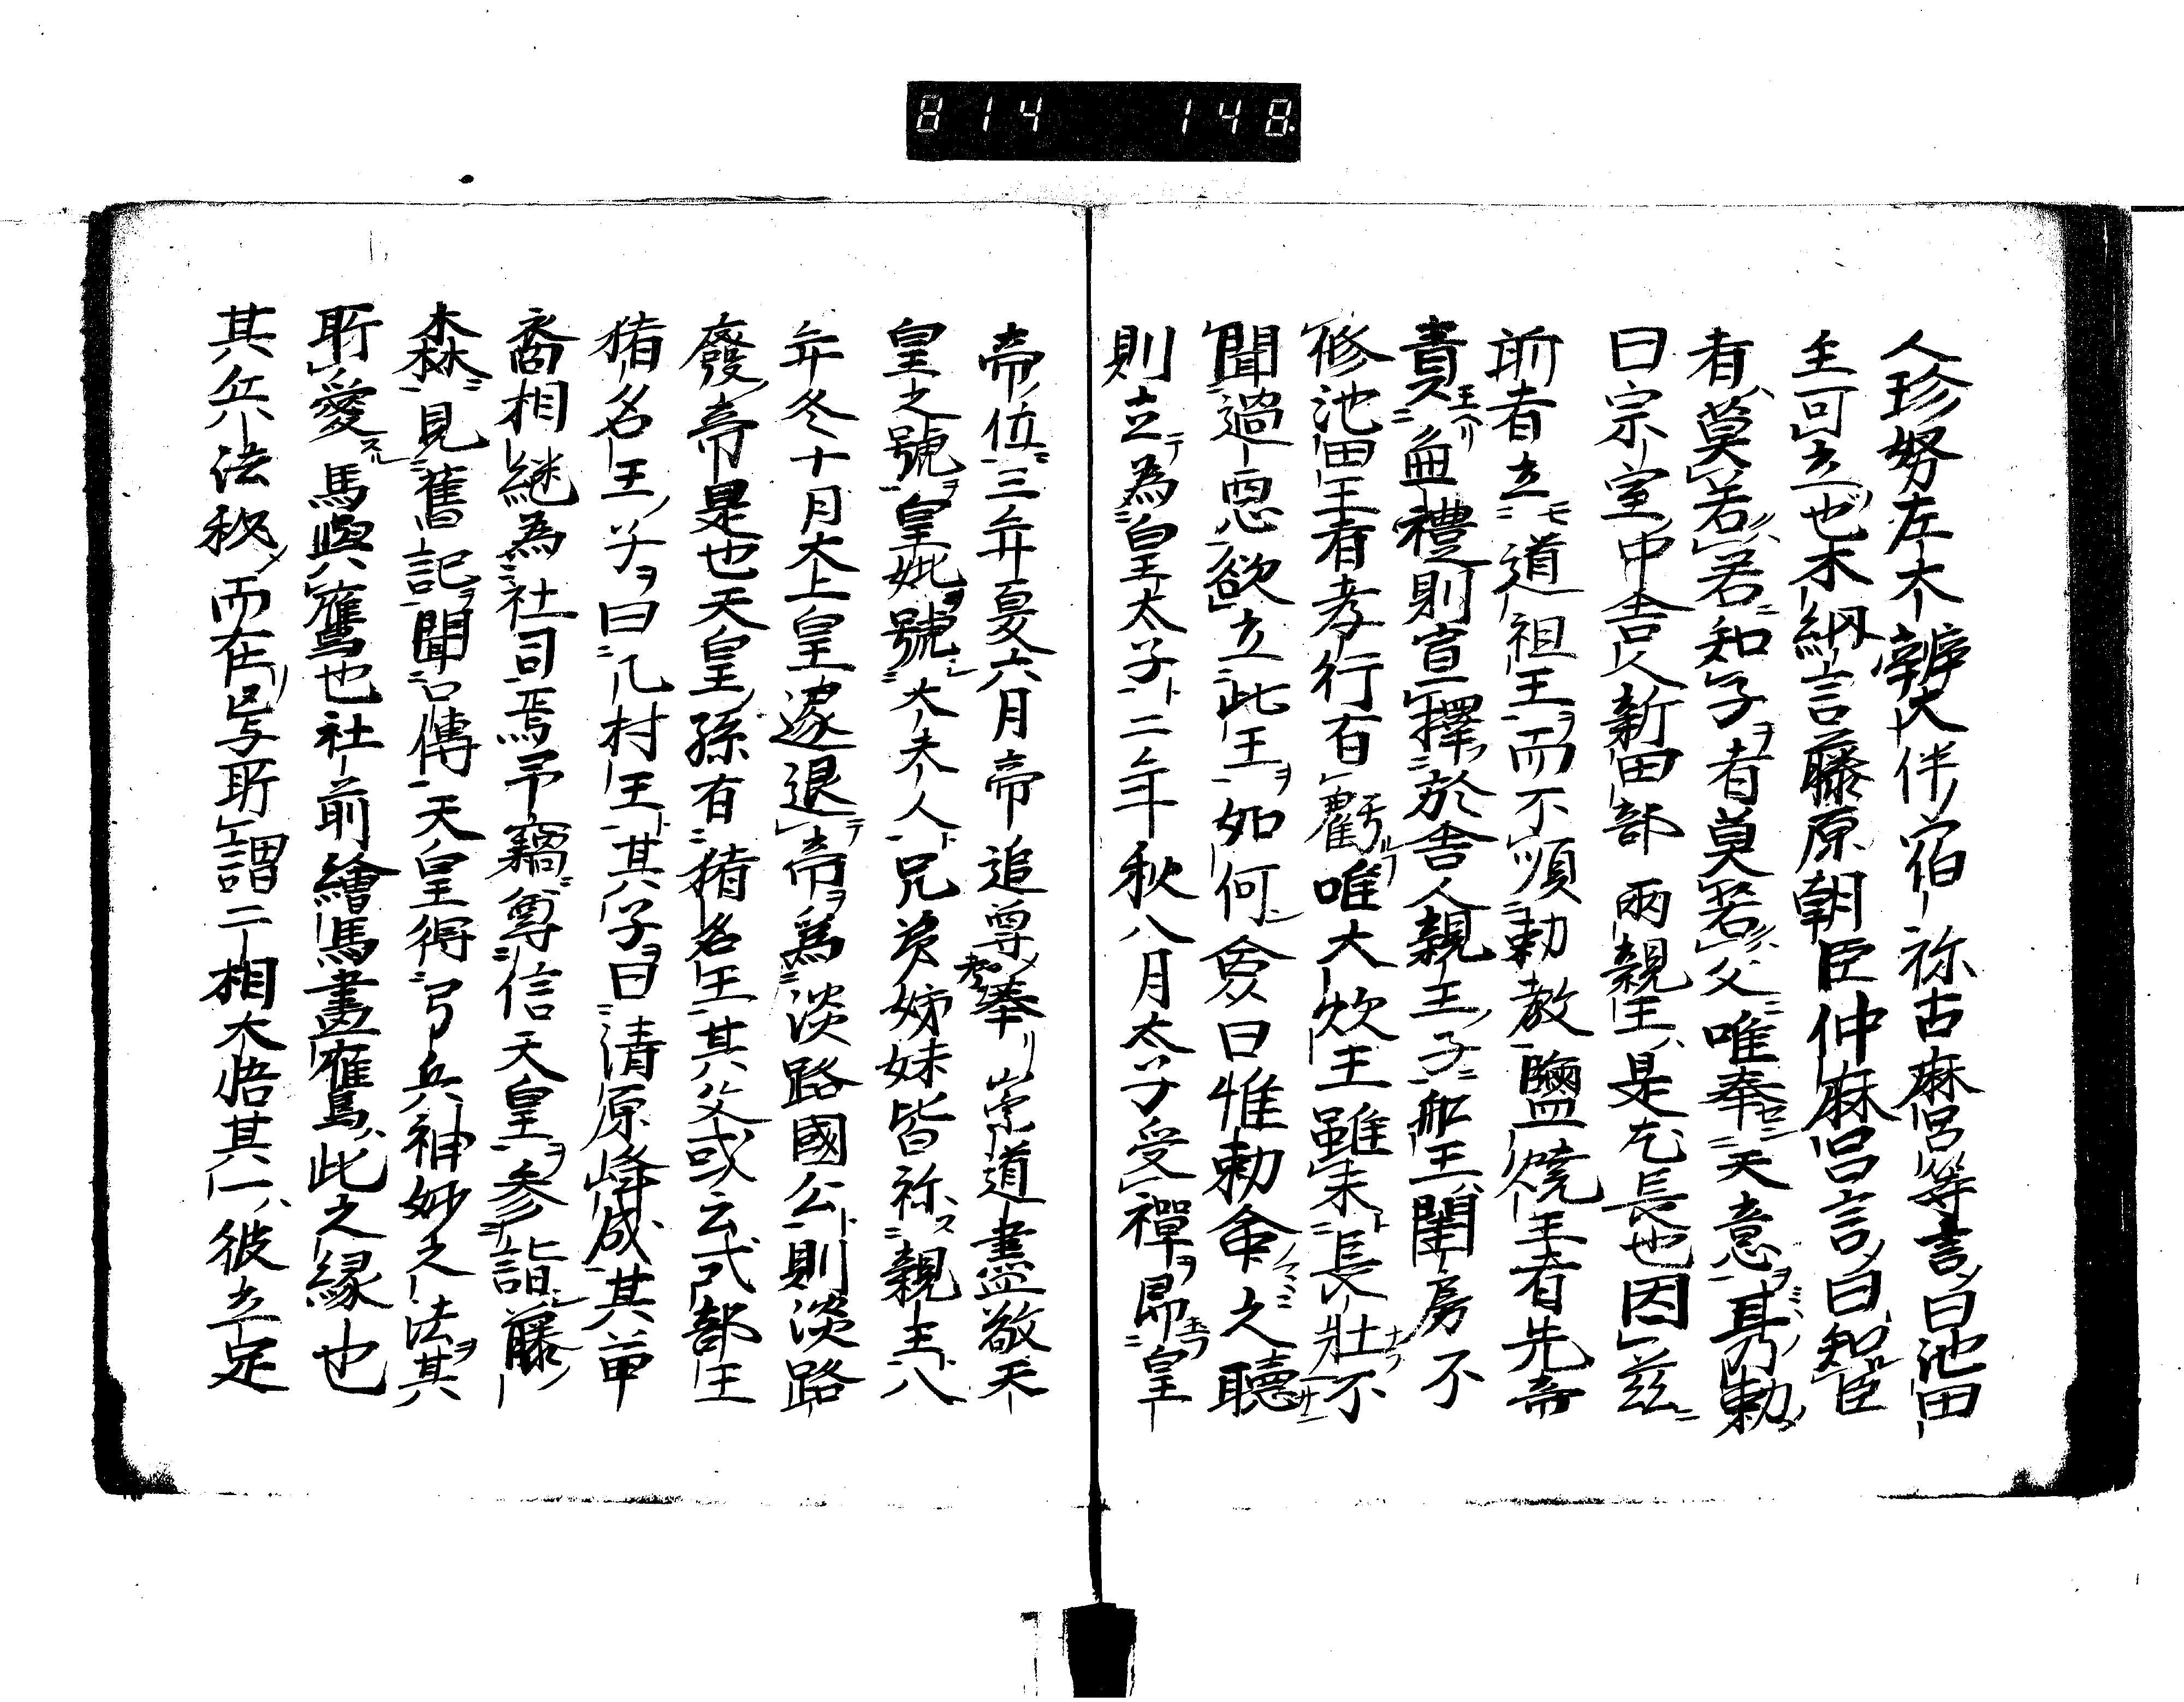 814 148
人珍努左大辨大伴宿祢古麻呂等言曰池田
王可立也木納言藤原朝臣仲麻呂言曰知臣
者莫若君知子者莫若父唯奉天意其勅
曰宗室中舎人新田部両親王是尤長也因茲
前者立道祖王而不順勅教塩焼王者先帝
責無禮則宣擇於舎人親王子船王閨房不
修池田王者孝行有虧唯大炊王雖未長壮不
聞過悪欲立此王如何僉曰惟勅命之聽
則立為皇太子二年秋八月太子受禪即皇
帝位三年夏六月帝追尊奉崇道盡敬天
皇之號皇妣號大夫人兄弟姉妹皆祢親王八
年冬十月太上皇遂退帝為淡路國公則淡路
廢帝是也天皇孫有猪名王其父或云式部王
猪名王子曰凡村王其子曰清原峰成其苗
裔相継為社司焉予竊尊信天皇参詣藤
森見舊記聞口傳天皇得弓兵神妙之法其
所愛馬與鷹也社前繪馬畫鷹此之縁也
其兵法秘而在焉所謂二相大悟其一彼立足